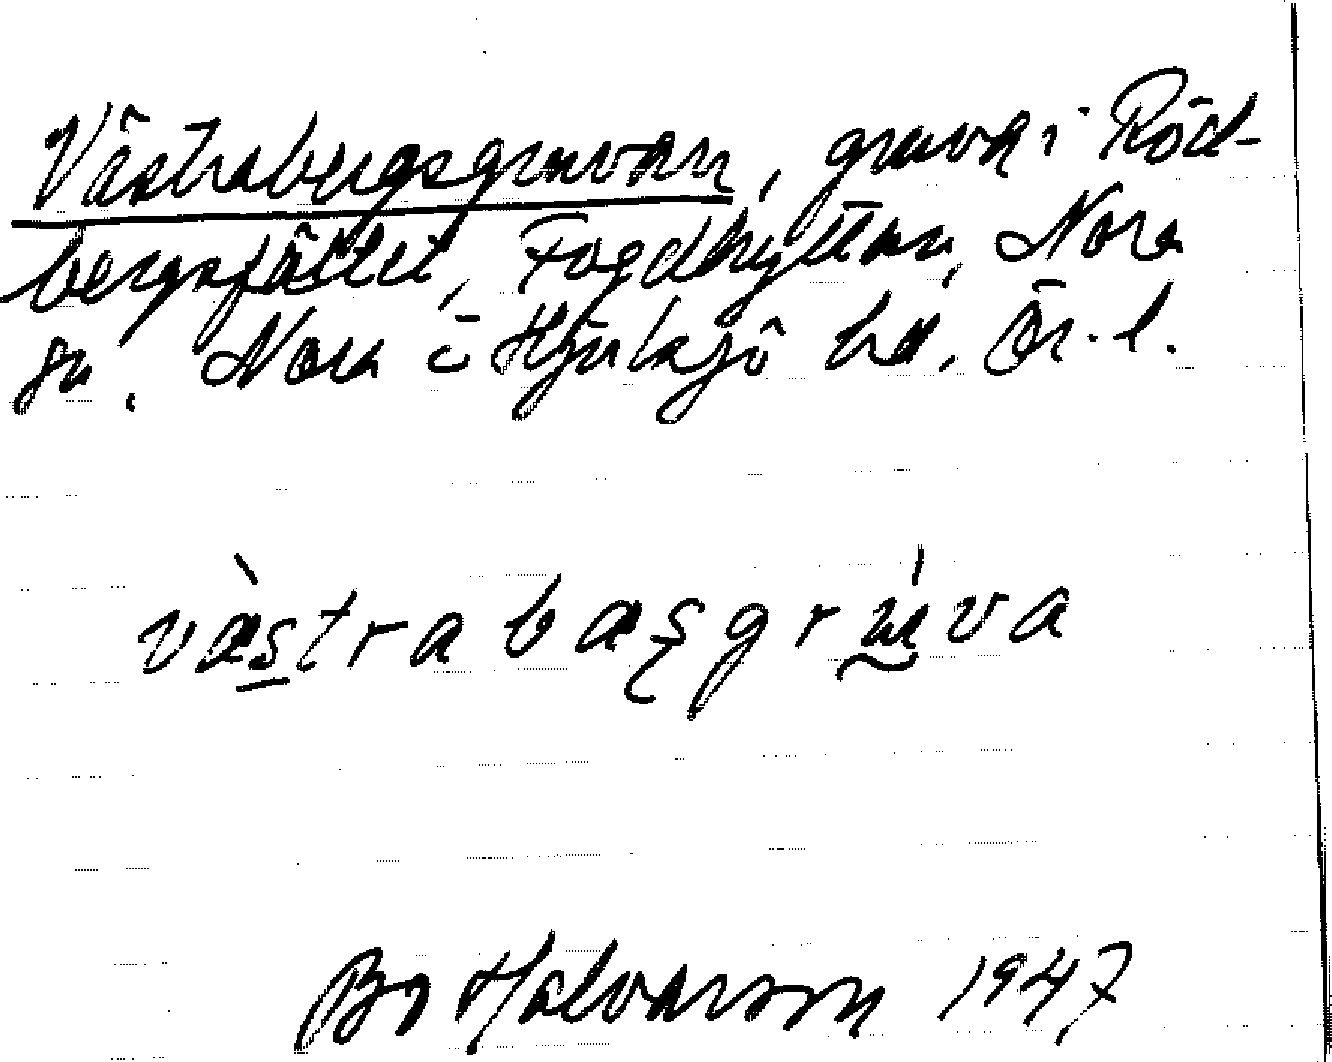 Västrabergsgruvan, gruva i Röd-
bergsfältet, Fogdhyttan, Nora
sn. Nora o Hjulsjö hd. Ör. l.
västra basgruva
Bo Halvarson 1947